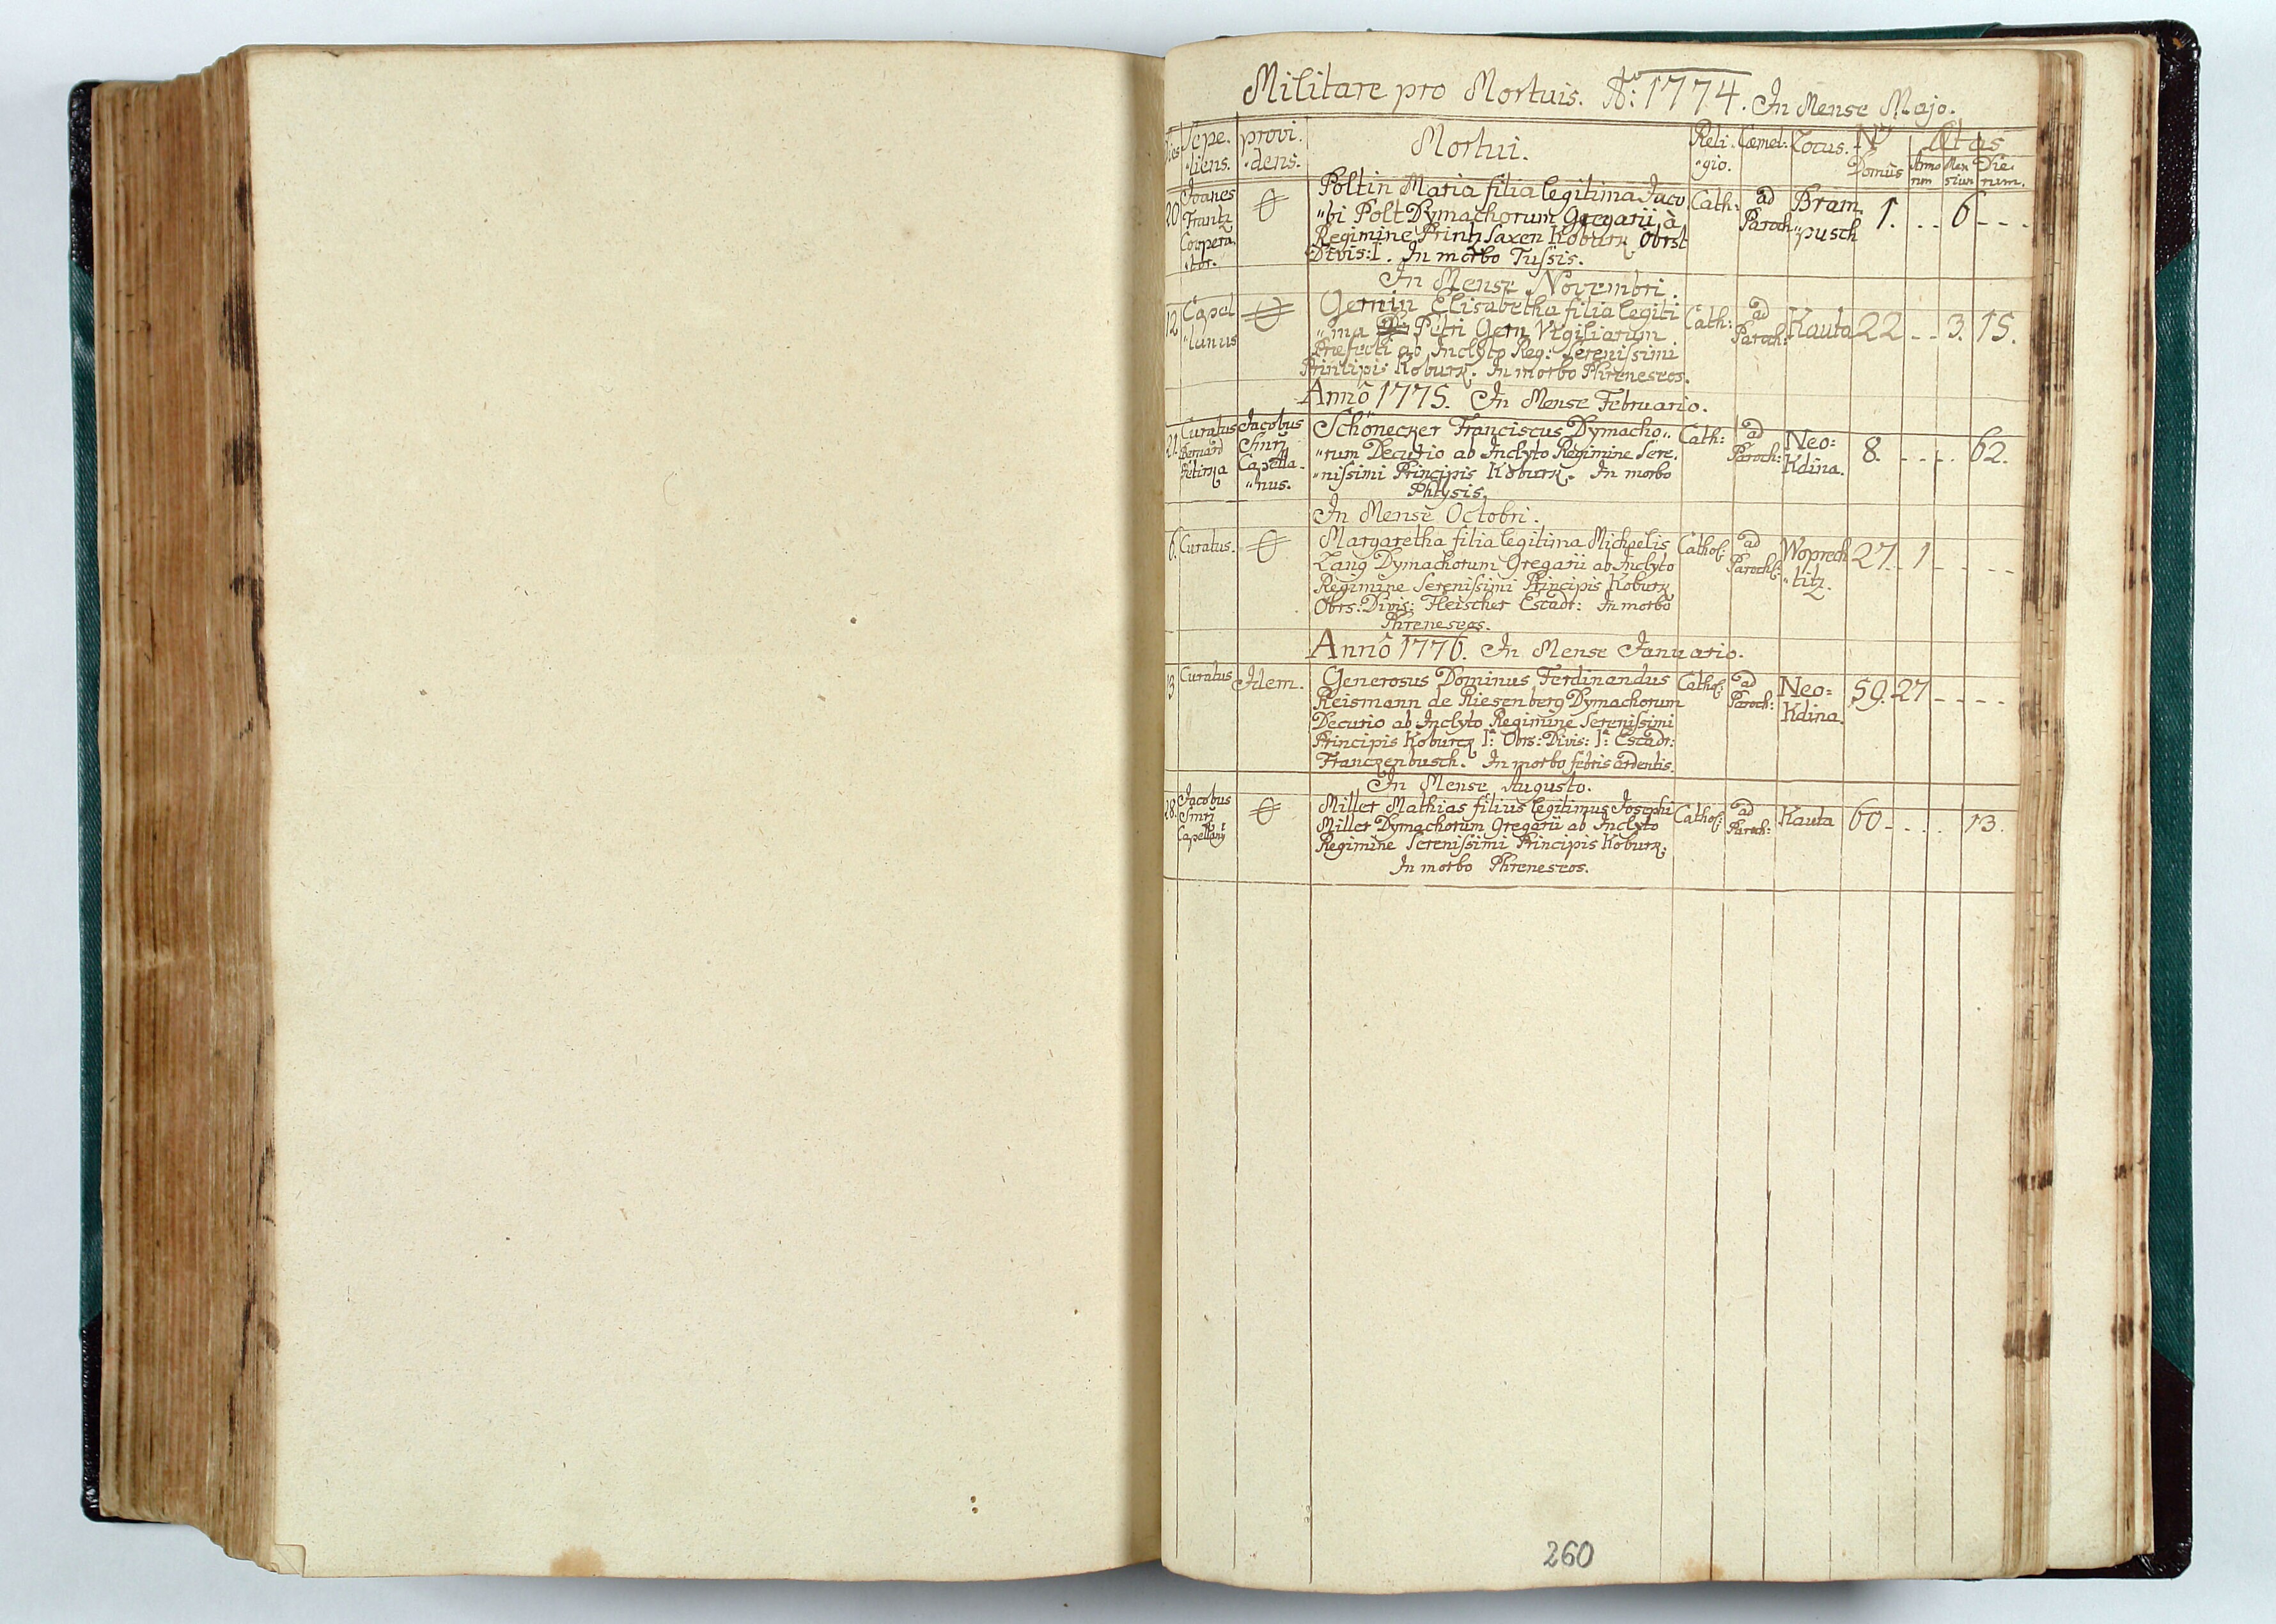 Militare pro Mortuis. Aō: 1774. In Mense Majo.
Dies Sepe- provi- Mortui. Reli- Cœmet: Locus. Nr̄ Ætas
"liens. "dens. "gio. Domûs Anno Men Die-
rum sium rum.
20 Joanes Frantz Coopera "tor. Poltin Maria filia legitima Jaco Cath: ad Paroch: Bram "pusch 1. . . 6 - - -
"bi Polt Dymachorum Gregarii à
Regimine Printz Saxen Koburk Obrst
Divis: I. In morbo Tussis.
In Mense Novembri.
12 Capel "lanus Gernin Elisabetha filia legiti Cath: ad Paroch: Kauta 22 - - 3. 15.
"ma Petri Gern Vigiliarum
Præfecti ab Inclyto Reg: Serenissimi
Principis Koburk. In morbo Phreneseos.
Annô 1775. In Mense Februario.
21. Curatus Bernard Jacobus Smrž Capella- "nus. Schönecker Franciscus Dymacho- Cath: ad Paroch: Neo= Kdina. 8. - - - . 62.
"rum Decurio ab Inclyto Regimine Sere-
"nissimi Principis Koburk. In morbo
Phtysis.
In Mense Octobri.
6. Curatus. Margaretha filia legitima Michaelis Cathol: ad Paroch: Woprech "titz. 27. 1 - - - -
Lang Dymachorum Gregarii ab Inclyto
Regimine Serenissimi Principis Koburk
Obrs: Divis: Fleischer Escadr: In morbo
Phreneseos.
Annô 1776. In Mense Januario.
13 Curatus Idem. Generosus Dominus Ferdinandus Cathol: ad Paroch: Neo= Kdina. 59. 27 - - - -
Reismann de Riesenberg Dymachorum
Decurio ab Inclyto Regimine Serenissimi
Principis Koburck I: Obrs: Divis: I: Escadr:
Franckenbusch. In morbo febris ardentis.
In Mense Augusto.
28. Jacobus Smrž Capellany Miller Mathias filius legitimus Josephi Cathol: ad Paroch: Kauta 60 - . . . 13.
Miller Dymachorum Gregarii ab Inclyto
Regimine Serenissimi Principis Koburk.
In morbo Phreneseos.
260